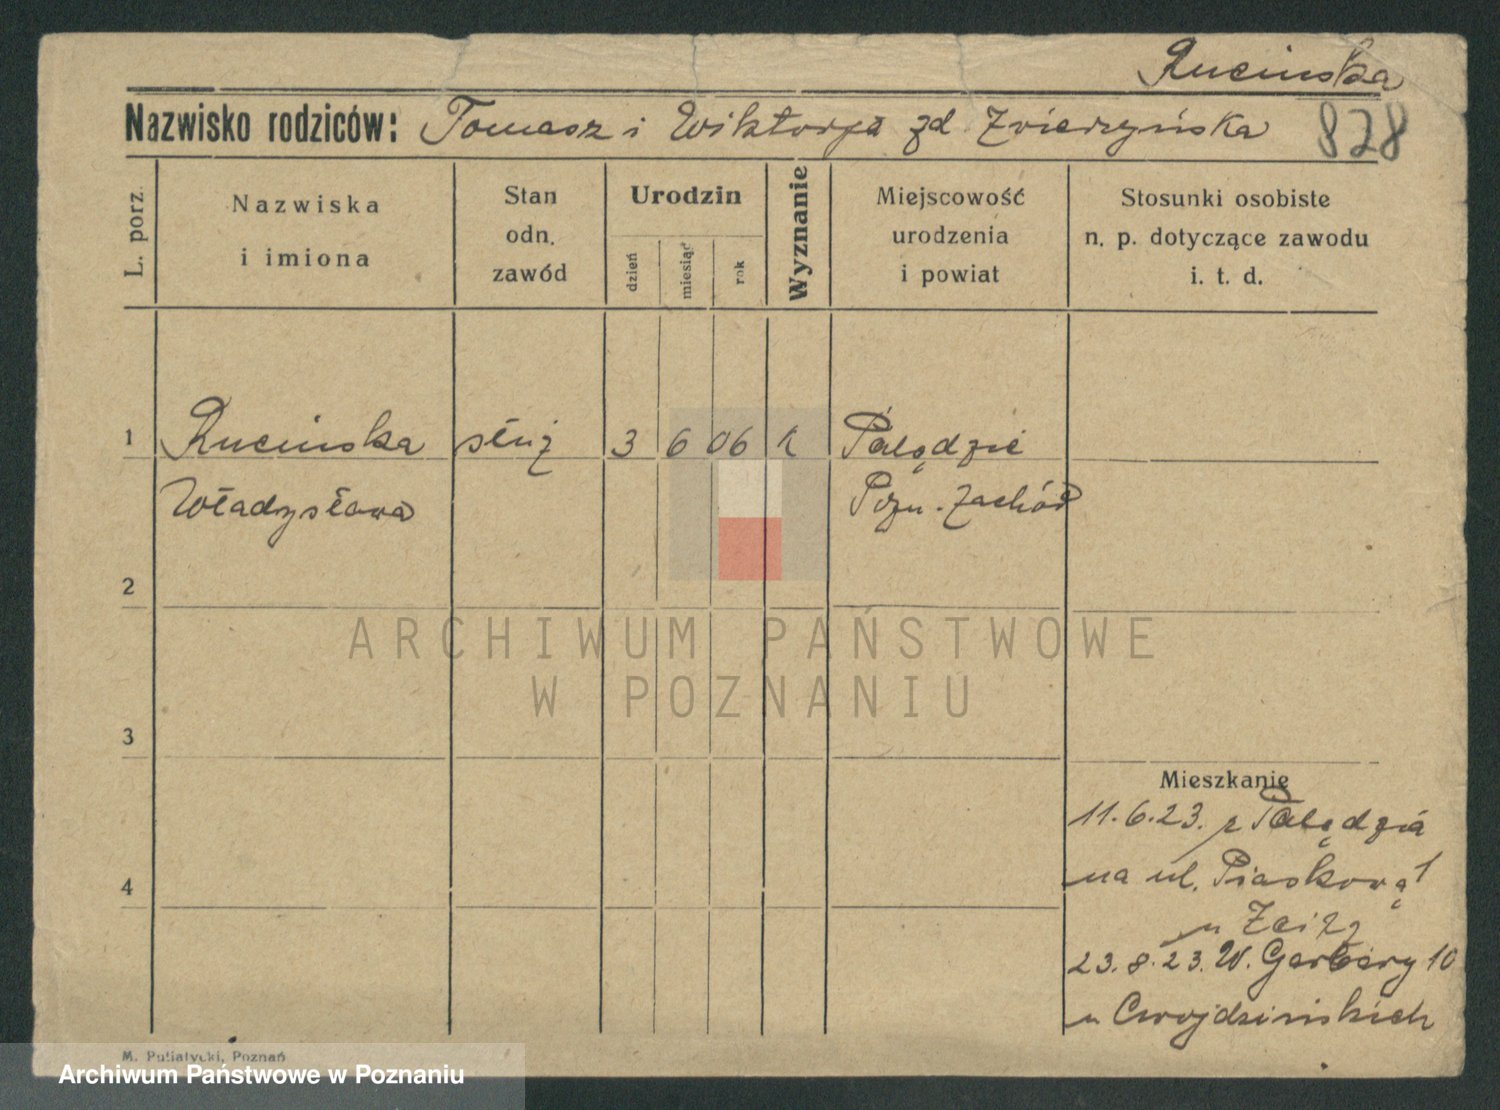 Rucinska
Nazwisko rodziców: Tomasz i Wiktorja zd. Zwierzyńska 828
L. porz.
Nazwiska
i imiona
Stan
odn.
zawód
Urodzin
dzień
miesiąc
rok
Wyznanie
Miejscowość
urodzenia
i powiat
Stosunki osobiste
n. p. dotyczące zawodu
i. t. d.
1 Rucinska służ 3 6 06 k Palędzie
Władysława Pozn. Zachód
2
ARCHIWUM PAŃSTWOWE
W POZNANIU
3
Mieszkanie
11.6.23. z Palędzia
4 na ul. Piaskową 1
u
23.8.23. W. Garbary 10
u Cwojdzińskich
M. Putiatycki, Poznań
Archiwum Państwowe w Poznaniu